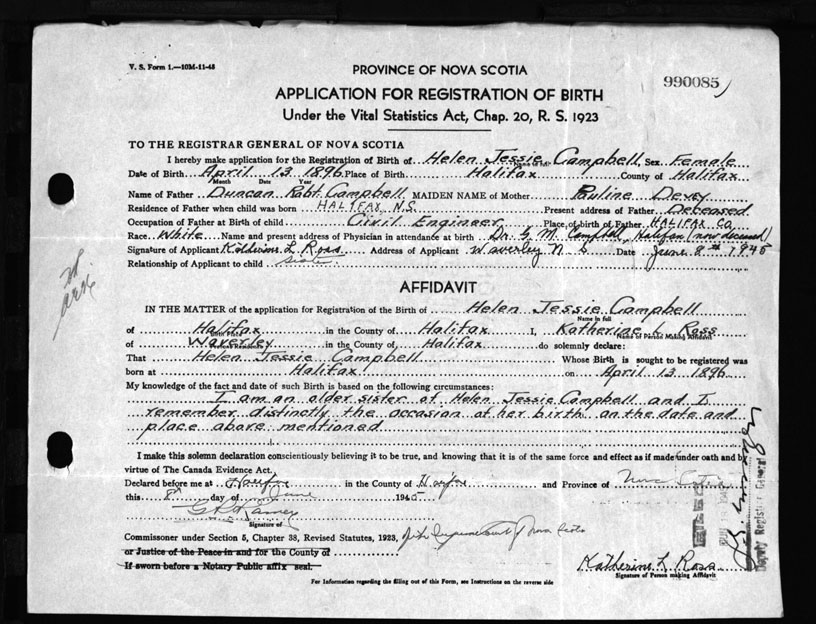 V. S. Form 1.—10M-11-43
PROVINCE OF NOVA SCOTIA
990085
APPLICATION FOR REGISTRATION OF BIRTH
Under the Vital Statistics Act, Chap. 20, R. S. 1923
TO THE REGISTRAR GENERAL OF NOVA SCOTIA
I hereby make application for the Registration of Birth of Helen Jessie Campbell Sex Female
Name in full
Date of Birth April 13 1896 Place of Birth Halifax County of Halifax
Month Date Year
Name of Father Duncan Robt. Campbell MAIDEN NAME of Mother Pauline Devey
Residence of Father when child was born HALIFAX N.S. Present address of Father Deceased
Occupation of Father at Birth of child Civil Engineer Place of birth of Father HALIFAX Co.
Race White Name and present address of Physician in attendance at birth Dr. G. M. Campbell, Halifax (now deceased)
Signature of Applicant Katherine L Ross Address of Applicant Waverley N S Date June 8th 1945
Relationship of Applicant to child sister
AFFIDAVIT
IN THE MATTER of the application for Registration of the Birth of Helen Jessie Campbell
Name in full
of Halifax in the County of Halifax I, Katherine L Ross
Birth Place Name of Person Making Affidavit
of Waverley in the County of Halifax do solemnly declare:
That Helen Jessie Campbell Whose Birth is sought to be registered was
born at Halifax on April 13 1896
My knowledge of the fact and date of such Birth is based on the following circumstances:
I am an older sister of Helen Jessie Campbell and I
remember distinctly the occasion of her birth on the date and
place above mentioned
I make this solemn declaration conscientiously believing it to be true, and knowing that it is of the same force and effect as if made under oath and by
virtue of The Canada Evidence Act.
Declared before me at Halifax in the County of Halifax and Province of Nova Scotia
this 8th day of June 1945
Signature of
Commissioner under Section 5, Chapter 38, Revised Statutes, 1923, Supreme Court of Nova Scotia
or Justice of the Peace in and for the County of
If sworn before a Notary Public affix seal.
Katherine L Ross
Signature of Person making Affidavit
For Information regarding the filling out of this Form, see Instructions on the reverse side
Deputy Registrar General